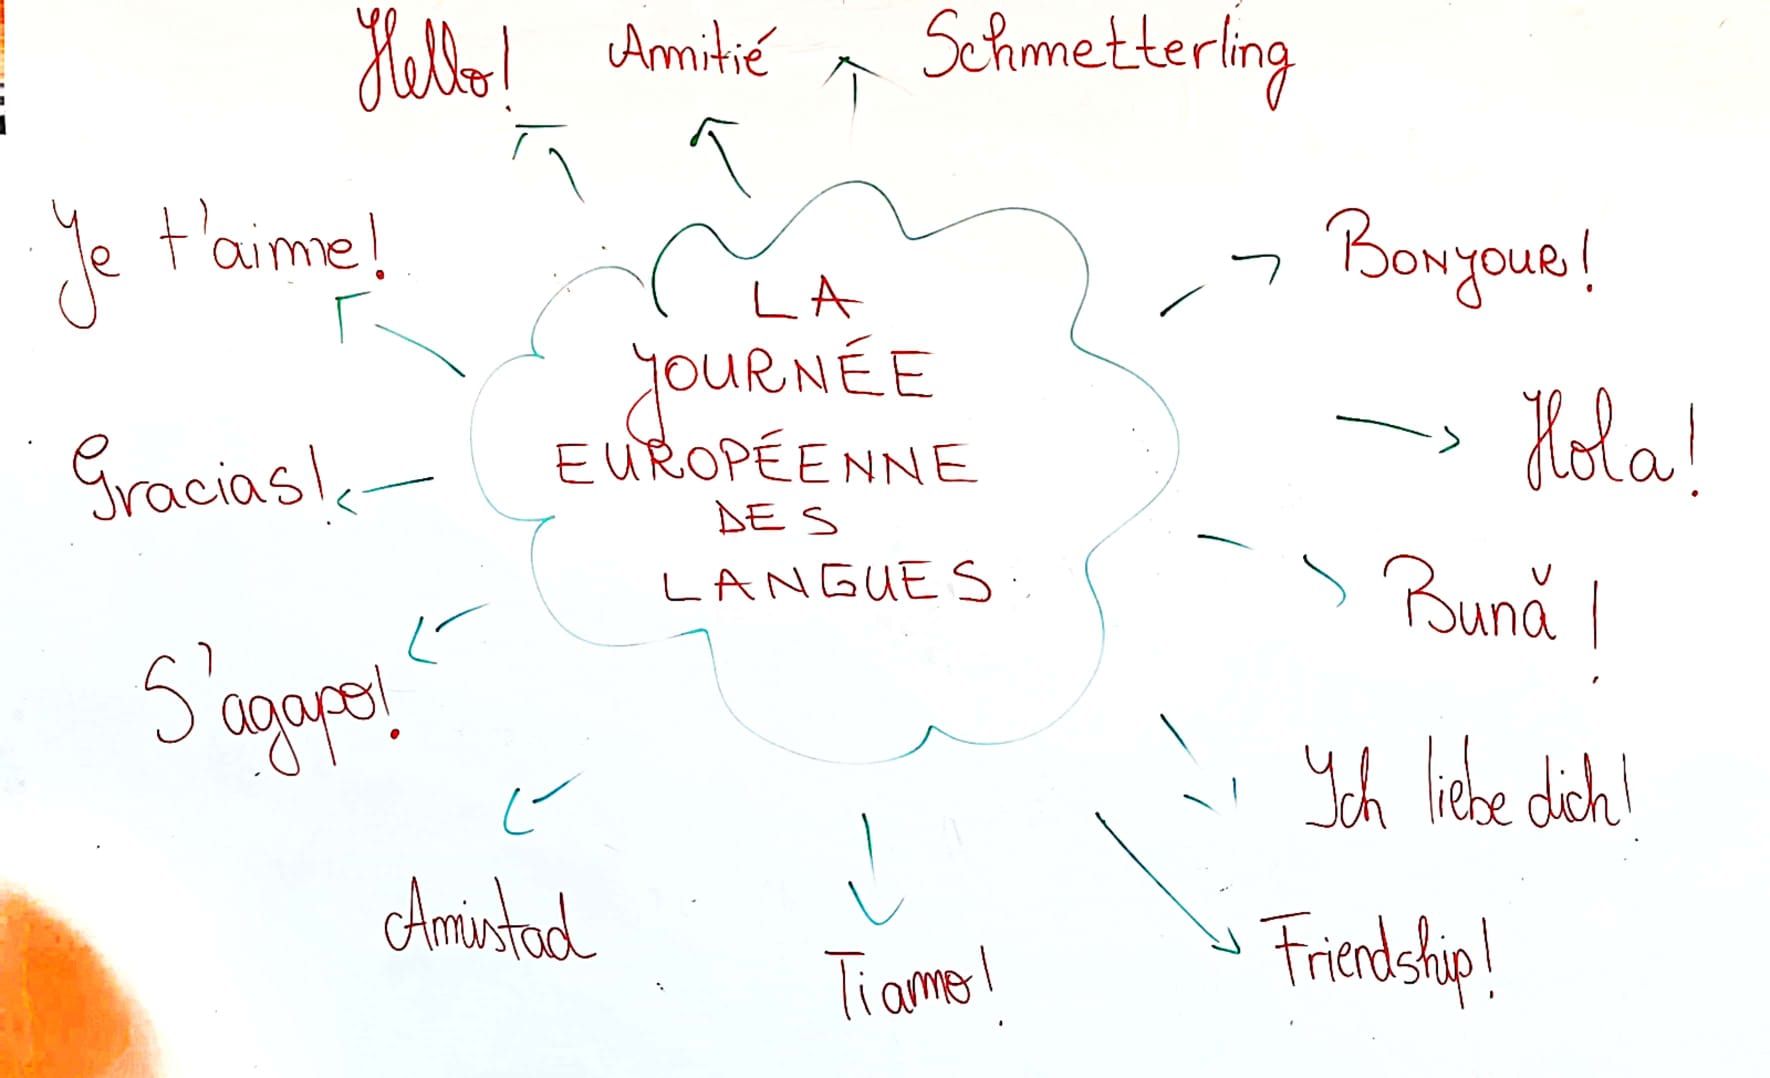 Hello! Amitié Schmetterling
Je t'aime! Bonjour!
LA
JOURNÉE
EUROPÉENNE
DES
LANGUES
Gracias! Hola!
Bună!
S'agapo!
Ich liebe dich!
Amistad
Ti amo! Friendship!